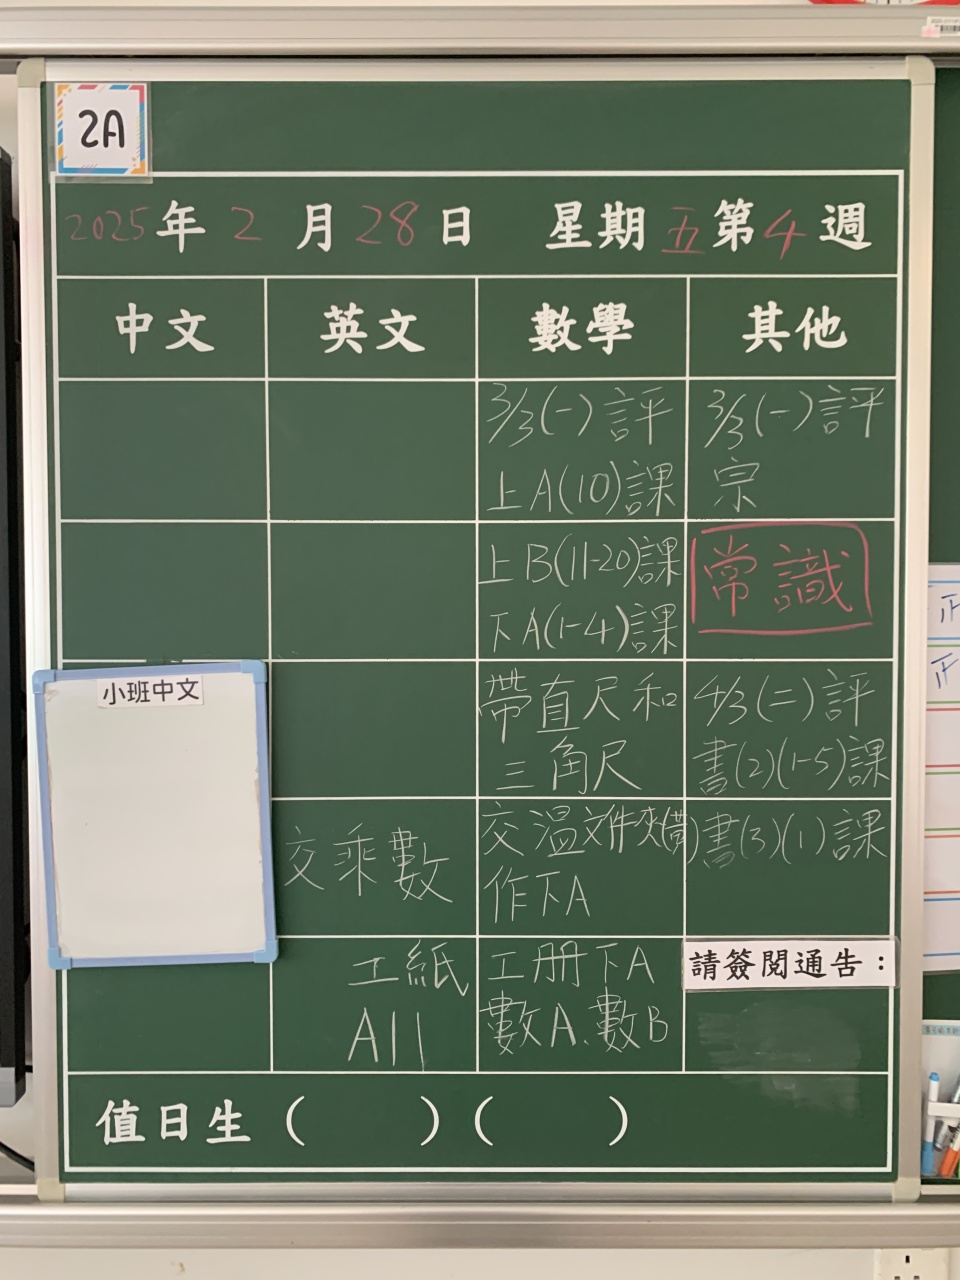 2A
2025年2月28日 星期五第4週
中文 英文 數學 其他
3/3(一)評
上A(10)課
3/3(一)評
宗
上B(11-20)課
下A(1-4)課
常識
小班中文
帶直尺和
三角尺
4/3(二)評
書(2)(1-5)課
交乘數
交溫文件夾(藍)
作下A
書(3)(1)課
工紙
A11
工冊下A
數A、數B
請簽閱通告：
值日生( )( )
正
正